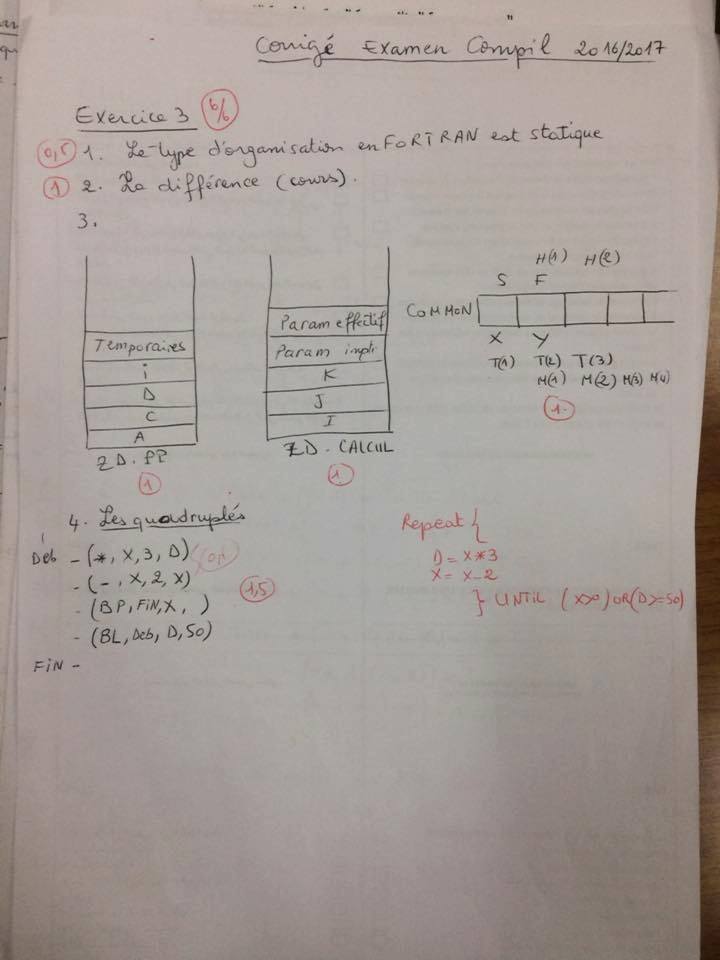 Corrigé Examen Compil 2016/2017
Exercice 3 6/6
0,5 1. Le type d'organisation en FORTRAN est statique
1 2. La différence (cours).
3.
Temporaires
i
D
C
A
ZD.PP
1
Param effectif
Param impli
K
J
I
ZD.CALCUL
1
H(1) H(2)
S F
COMMON
X Y
T(1) T(2) T(3)
M(1) M(2) M(3) M(4)
1
4. Les quadruplés
Deb - (*, X, 3, D)
- (-, X, 2, X)
- (BP, FiN, X, )
- (BL, Deb, D, 50)
FiN -
1,5
Repeat {
D = X*3
X = X-2
} UNTIL (X>0) OR (D>=50)